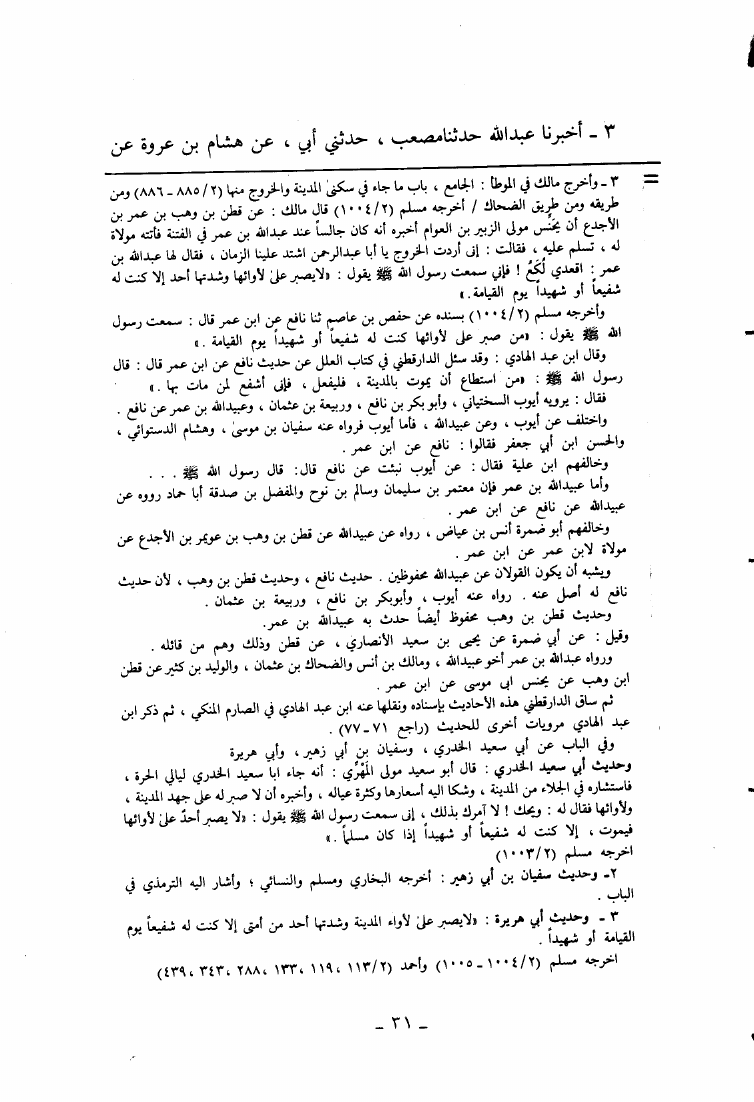 ٣ ـ أخبرنا عبدالله حدثنامصعب ، حدثني أبي ، عن هشام بن عروة عن
=
٣ ـ وأخرج مالك في الموطأ : الجامع ، باب ما جاء في سكنىٰ المدينة والخروج منها (٢/ ٨٨٥ ـ ٨٨٦) ومن
طريقه ومن طريق الضحاك / أخرجه مسلم (٢/ ١٠٠٤) قال مالك : عن قطن بن وهب بن عمر بن
الأجدع أن يحَنِّس مولى الزبير بن العوام أخبره أنه كان جالساً عند عبدالله بن عمر في الفتنة فأتته مولاة
له ، تسلم عليه ، فقالت : إنى أردت الخروج يا أبا عبدالرحمن اشتد علينا الزمان ، فقال لها عبدالله بن
عمر : اقعدي لُكَعُ ! فإني سمعت رسول الله ﷺ يقول : «لايصبر علىٰ لأوائها وشدتها أحد إلا كنت له
شفيعاً أو شهيداً يوم القيامة.»
وأخرجه مسلم (٢/ ١٠٠٤) بسنده عن حفص بن عاصم ثنا نافع عن ابن عمر قال : سمعت رسول
الله ﷺ يقول : «من صبر على لأوائها كنت له شفيعاً أو شهيداً يوم القيامة . »
وقال ابن عبد الهادي : وقد سئل الدارقطني في كتاب العلل عن حديث نافع عن ابن عمر قال : قال
رسول الله ﷺ : «من استطاع أن يموت بالمدينة ، فليفعل ، فإنى أشفع لمن مات بها . »
فقال : يرويه أيوب السختياني ، وأبو بكر بن نافع ، وربيعة بن عثمان ، وعبيدالله بن عمر عن نافع .
واختلف عن أيوب ، وعن عبيدالله ، فأما أيوب فرواه عنه سفيان بن موسىٰ ، وهشام الدستوائي ،
والحسن ابن أبي جعفر فقالوا : نافع عن ابن عمر .
وخالفهم ابن علية فقال : عن أيوب نبئت عن نافع قال: قال رسول الله ﷺ . . .
وأما عبيدالله بن عمر فإن معتمر بن سليمان وسالم بن نوح والمفضل بن صدقة أبا حماد رووه عن
عبيدالله عن نافع عن ابن عمر .
وخالفهم أبو ضمرة أنس بن عياض ، رواه عن عبيدالله عن قطن بن وهب بن عويمر بن الأجدع عن
مولاة لابن عمر عن ابن عمر .
ويشبه أن يكون القولان عن عبيدالله محفوظين . حديث نافع ، وحديث قطن بن وهب ، لأن حديث
نافع له أصل عنه . رواه عنه أيوب ، وأبوبكر بن نافع ، وربيعة بن عثمان .
وحديث قطن بن وهب محفوظ أيضاً حدث به عبيدالله بن عمر.
وقيل : عن أبي ضمرة عن يحيى بن سعيد الأنصاري ، عن قطن وذلك وهم من قائله .
ورواه عبدالله بن عمر أخو عبيدالله ، ومالك بن أنس والضحاك بن عثمان ، والوليد بن كثير عن قطن
ابن وهب عن يحنس ابى موسى عن ابن عمر .
ثم ساق الدارقطني هذه الأحاديث بإسناده ونقلها عنه ابن عبد الهادي في الصارم المنكي ، ثم ذكر ابن
عبد الهادي مرويات أخرى للحديث (راجع ٧١ ـ ٧٧) .
وفي الباب عن أبي سعيد الخدري ، وسفيان بن أبي زهير ، وأبي هريرة
وحديث أبي سعيد الخدري : قال أبو سعيد مولى المَهْرِّي : أنه جاء ابا سعيد الخدري ليالي الحرة ،
فاستشاره في الجلاء من المدينة ، وشكا اليه أسعارها وكثرة عياله ، وأخبره أن لا صبر له على جهد المدينة ،
ولأوائها فقال له : ويحك ! لا آمرك بذلك ، إنى سمعت رسول الله ﷺ يقول : «لا يصبر أحدٌ علىٰ لأوائها
فيموت ، إلا كنت له شفيعاً أو شهيداً إذا كان مسلماً . »
اخرجه مسلم (٢/ ١٠٠٣)
٢ـ وحديث سفيان بن أبي زهير : أخرجه البخاري ومسلم والنسائي ؛ وأشار اليه الترمذي في
الباب .
٣ ـ وحديث أبي هريرة : «لايصبر علىٰ لأواء المدينة وشدتها أحد من أمتى إلا كنت له شفيعاً يوم
القيامة أو شهيداً .
اخرجه مسلم (٢/ ١٠٠٤ ـ ١٠٠٥) وأحمد (٢/ ١١٣، ١١٩، ١٣٣، ٢٨٨، ٣٤٣، ٤٣٩)
ـ ٣١ ـ